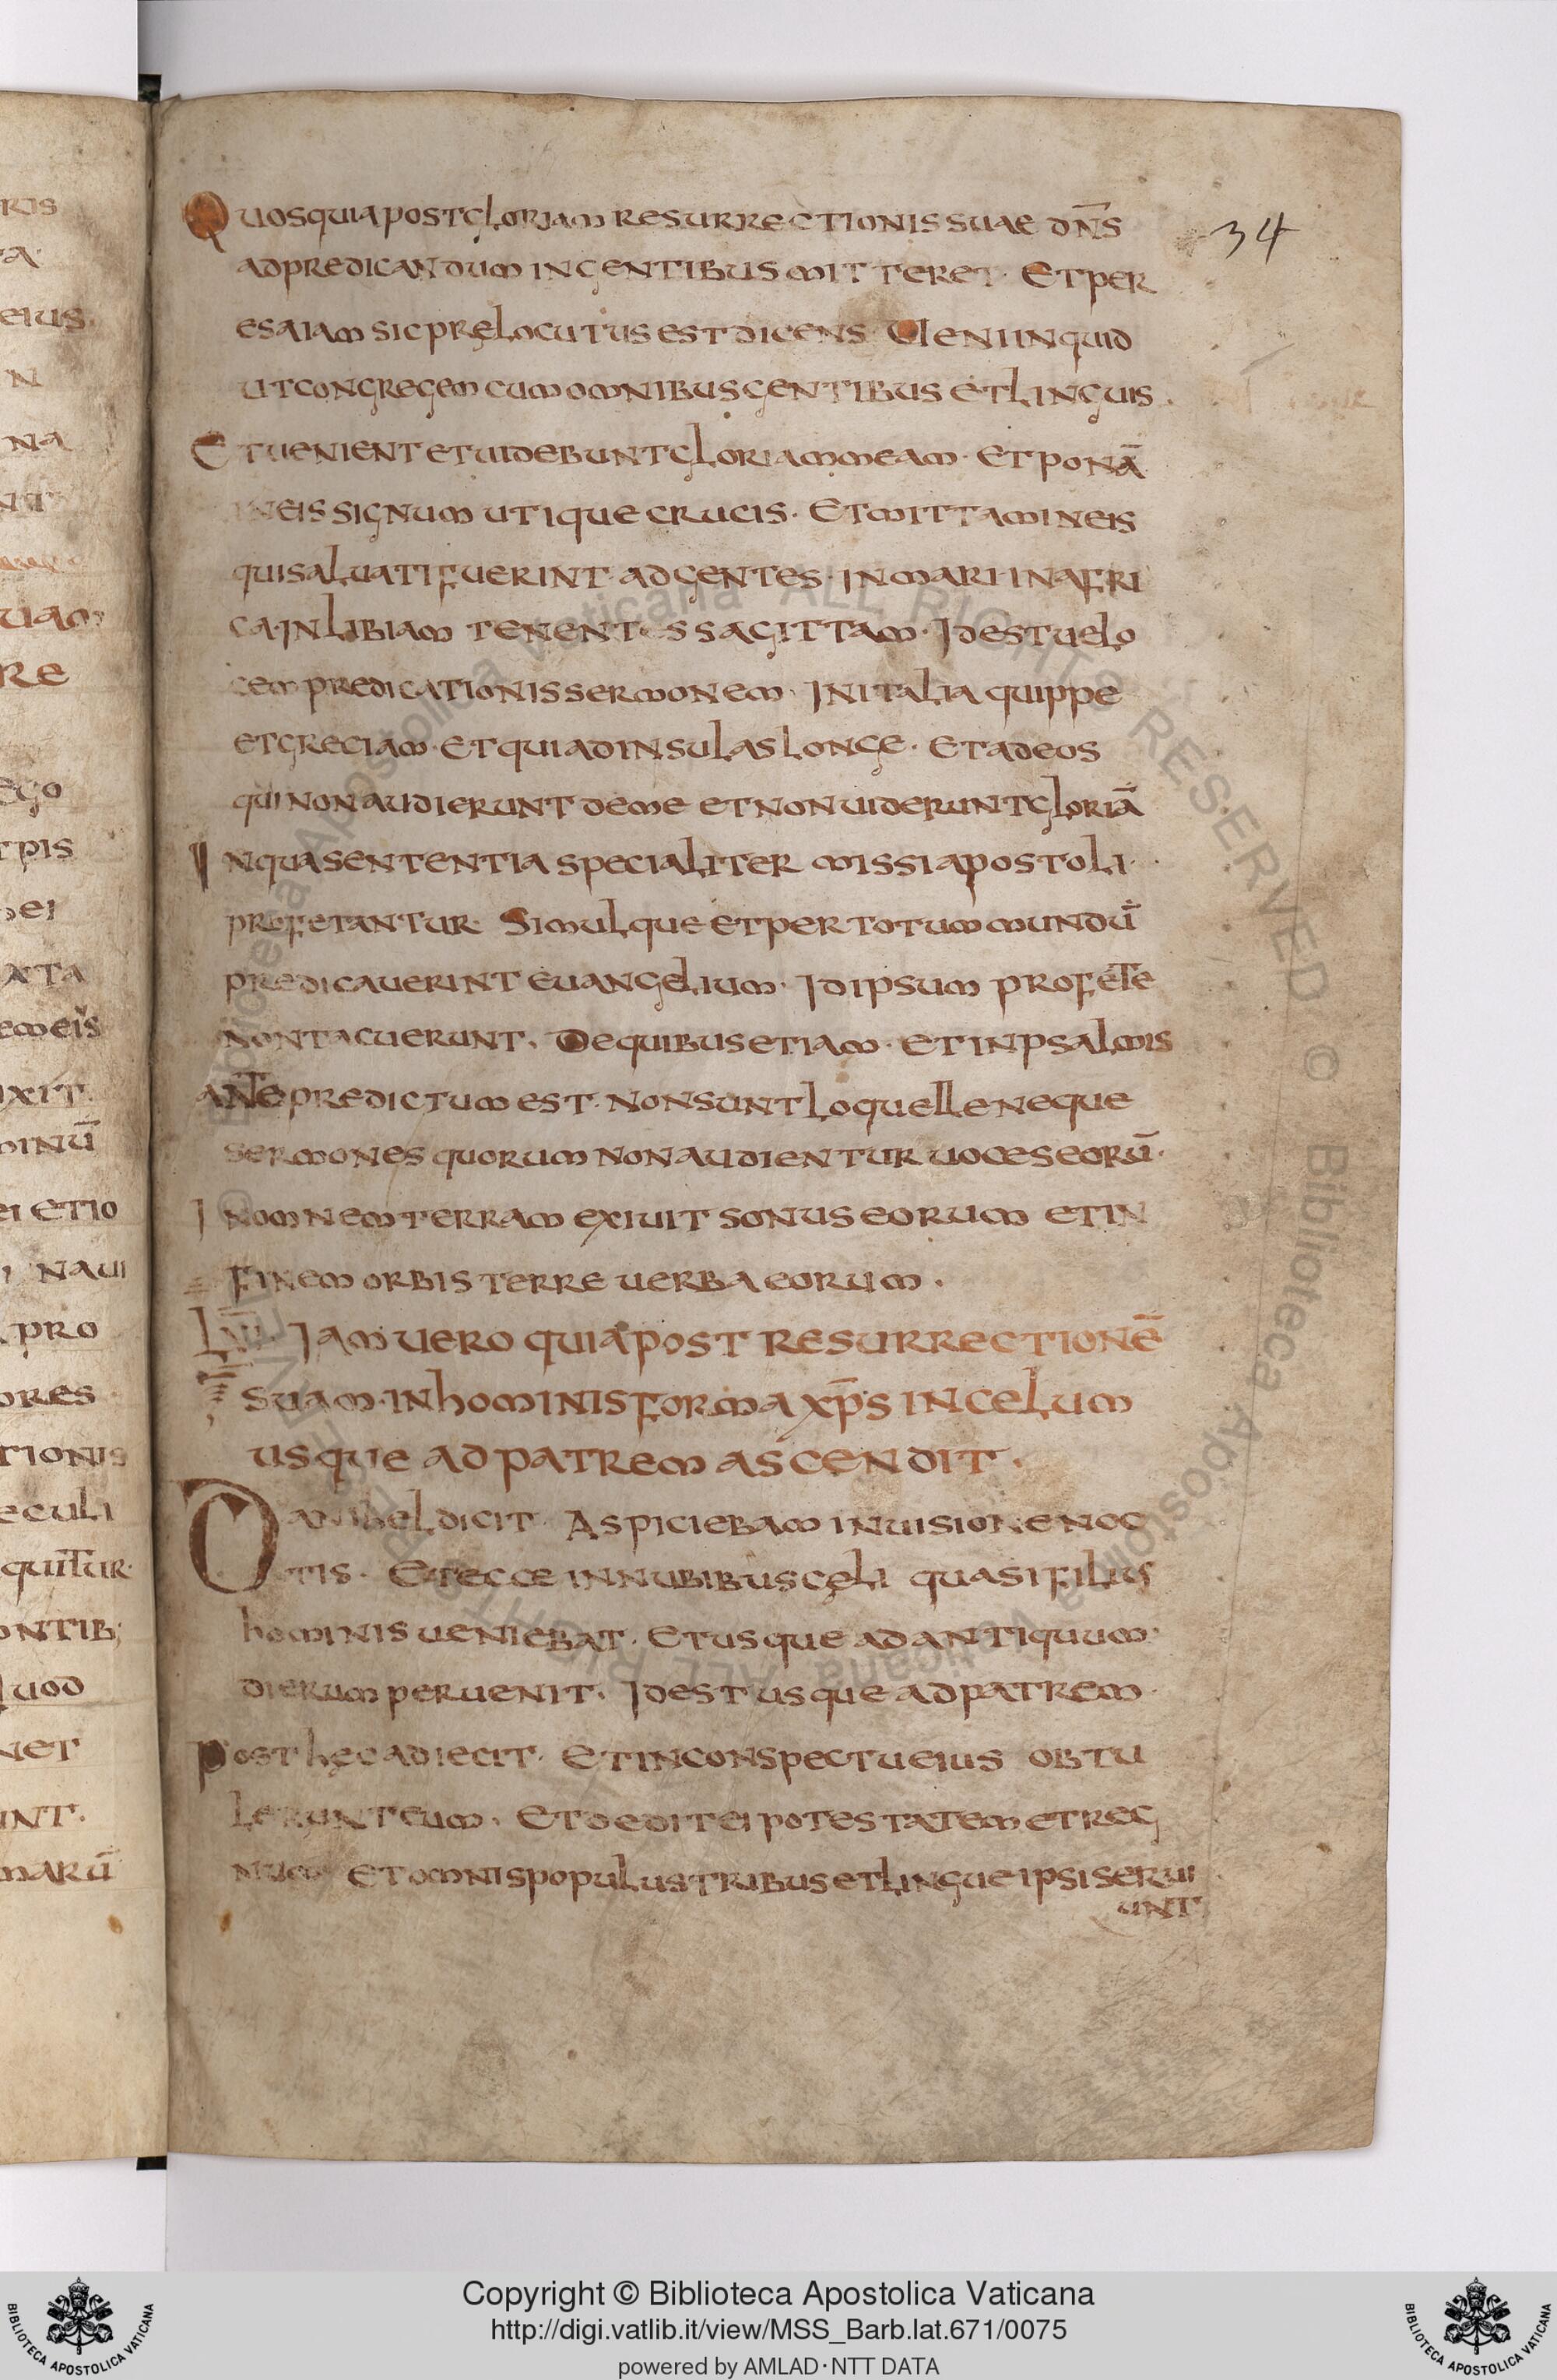 Quosquia post gloriam resurrectionis suae dn̄s
34
ad predicandum in gentibus mitteret · Et per
esaiam sic pręlocutus est dicens · Ueni inquid
ut congregem cum omnibus gentibus et linguis ·
Et uenient et uidebunt gloriam meam · Et ponā
in eis signum utique crucis · Et mittam in eis
qui saluati fuerint ad gentes · in mari in afri
ca · in libiam tenentes sagittam · Id est uelo
cem predicationis sermonem · In italia quippe
et greciam · Et qui ad insulas longe · Et ad eos
qui non audierunt de me et non uiderunt gloriā
In qua sententia specialiter missi apostoli ·
prefetantur · Simulque et per totum mundū
predicauerint euangelium · Id ipsum profete
non tacuerunt · De quibus etiam · Et in psalmis
ante predictum est · Non sunt loquelle neque
sermones quorum non audientur uoces eorū ·
In omnem terram exiuit sonus eorum et in
finem orbis terre uerba eorum ·
Lvi · Iam uero quia post resurrectionē
suam · in hominis forma xp̄s in celum
usque ad patrem ascendit ·
Danihel dicit · Aspiciebam in uisione noc
tis · Et ecce in nubibus cęli quasi filius
hominis ueniebat · Et usque ad antiquum
dierum peruenit · Id est usque ad patrem ·
Post hęc adiecit · Et in conspectu eius obtu
lerunt eum · Et dedit ei potestatem et reg
num · Et omnis populus tribus et lingue ipsi serui
unt
ris
eius
N
na
uam
re
ego
pis
xta
em eis
ixit
minū
ei Etio
naui
pro
ores
tionis
eculi
quitur ·
ontib;
uod
net
unt ·
marū
Copyright © Biblioteca Apostolica Vaticana
http://digi.vatlib.it/view/MSS_Barb.lat.671/0075
powered by AMLAD · NTT DATA
BIBLIOTECA APOSTOLICA VATICANA
BIBLIOTECA APOSTOLICA VATICANA
© Biblioteca Apostolica Vaticana ALL RIGHTS RESERVED © Biblioteca Apostolica Vaticana ALL RIGHTS RESERVED